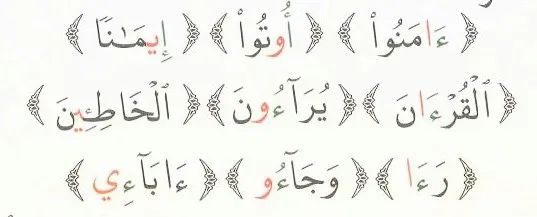 ﴿ ءَامَنُوا۟ ﴾ ﴿ أُوتُوا۟ ﴾ ﴿ إِيمَـٰنًا ﴾
﴿ ٱلْقُرْءَانَ ﴾ ﴿ يُرَآءُونَ ﴾ ﴿ ٱلْخَاطِـِٔينَ ﴾
﴿ رَءَا ﴾ ﴿ وَجَآءُو ﴾ ﴿ ءَابَآءِي ﴾